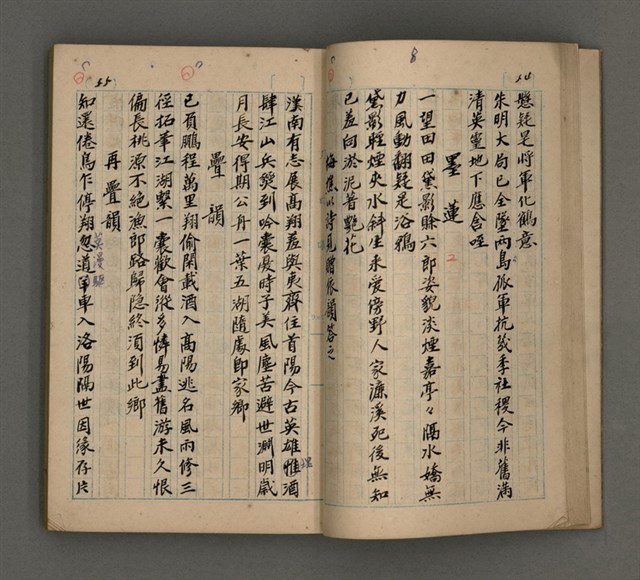 54
懸疑是將軍化鶴意
朱明大局已全墜兩島孤軍抗幾季社稷今非舊滿
清英靈地下應含咥
墨蓮
一望田田黛影賒六郎姿貌淡煙嘉亭々隔水嬌無
力風動翻疑是浴鴉
黛影輕煙夾水斜生來愛傍野人家濂溪死後無知
己羞向淤泥吾艷花
梅樵以詩見贈依韻答之
55
漢南有志展高翔羞與夷齊住首陽今古英雄惟酒
肆江山兵燹到吟囊憂時子美風塵苦避世淵明歲
月長安得期公舟一葉五湖隨處即家鄉
疊韻
已負鵬程萬里翔偷閑載酒入高陽逃名風雨修三
徑拓筆江湖繫一囊歡會縱多情易盡舊游未久恨
偏長桃源不絕漁郎路歸隱終須到此鄉
再疊韻
知還倦鳥乍停翔忽道軍車入洛陽隔世因緣存片
莫漫驅